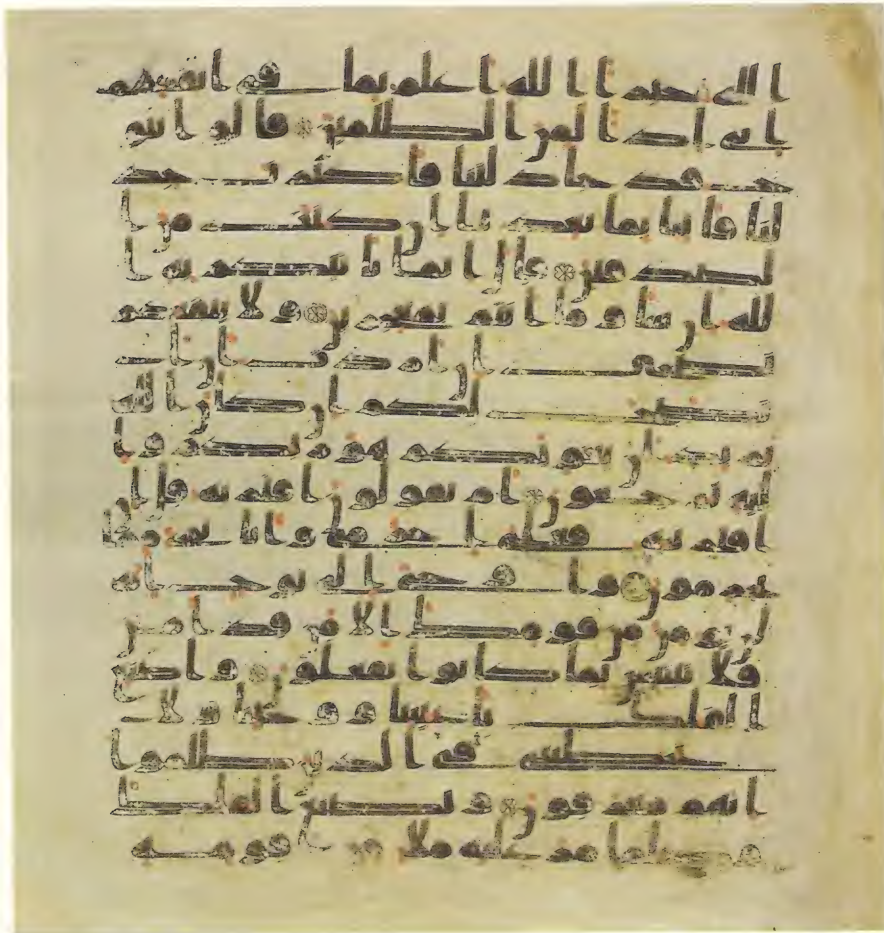 ا الله خيرا الله اعلم بما في انفسهم
اني اذا لمن الظلمين قالوا ينو
ح قد جادلتنا فاكثرت جد
لنا فاتنا بما تعدنا ان كنت من ا
لصدقين قال انما ياتيكم به ا
لله ان شا وما انتم بمعجزين ولا ينفعكم
نصحي ان اردت ان ا
نصح لكم ان كان الله
يريد ان يغويكم هو ربكم وا
ليه ترجعون ام يقولون افتريه قل ان
افتريته فعلي اجرامي وانا بري مما
تجرمون واوحي الى نوح انه
لن يومن من قومك الا من قد امن
فلا تبتئس بما كانوا يفعلون واصنع
الفلك باعيننا ووحينا ولا ت
خطبني في الذين ظلموا
انهم مغرقون ويصنع الفلك
وكلما مر عليه ملا من قومه